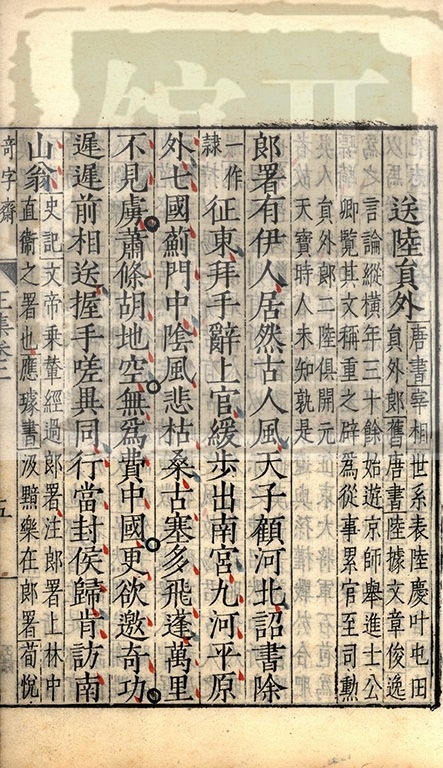 送陸貟外
唐書宰相世系表陸慶叶屯田
貟外郎舊唐書陸據文章俊逸
言論縱橫年三十餘始遊京師舉進士公
卿覽其文稱重之辟爲從事累官至司勳
貟外郎二陸俱開元
天寶時人未知孰是
郎署有伊人居然古人風天子顧河北詔書除
一作
隸
征東拜手辭上官緩步出南宮九河平原
外七國薊門中陰風悲枯桑古塞多飛蓬萬里
不見虜蕭條胡地空無爲費中國更欲邀奇功
遲遲前相送握手嗟異同行當封侯歸肯訪南
山翁
史記文帝乘輦經過郎署注郎署上林中
直衛之署也應璩書汲黯樂在郎署荀悅
奇字齋
五